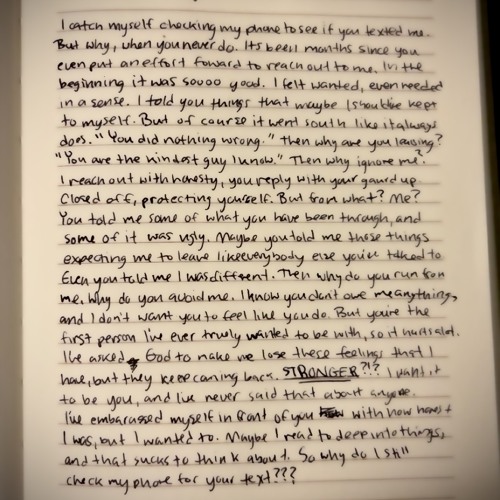 I catch myself checking my phone to see if you texted me.
But why, when you never do. Its been months since you
even put an effort foward to reach out to me. In the
beginning it was soooo good. I felt wanted, even needed
in a sense. I told you things that maybe I should've kept
to myself. But of course it went south like it always
does. "You did nothing wrong." Then why are you leaving?
"You are the kindest guy I know." Then why ignore me?
I reach out with honesty, you reply with your gaurd up
Closed off, protecting yourself. But from what? Me?
You told me some of what you have been through, and
some of it was ugly. Maybe you told me those things
expecting me to leave like everybody else you've talked to
Even you told me I was different. Then why do you run from
me. Why do you avoid me. I know you don't owe me anything,
and I don't want you to feel like you do. But you're the
first person I've ever truely wanted to be with, so it hurts alot.
I've asked God to make me lose these feelings that I
have, but they keep coming back. STRONGER?!? I want it
to be you, and I've never said that about anyone.
I've embarassed myself in front of you with how honest
I was, but I wanted to. Maybe I read to deep into things,
and that sucks to think about. So why do I still
check my phone for your text???